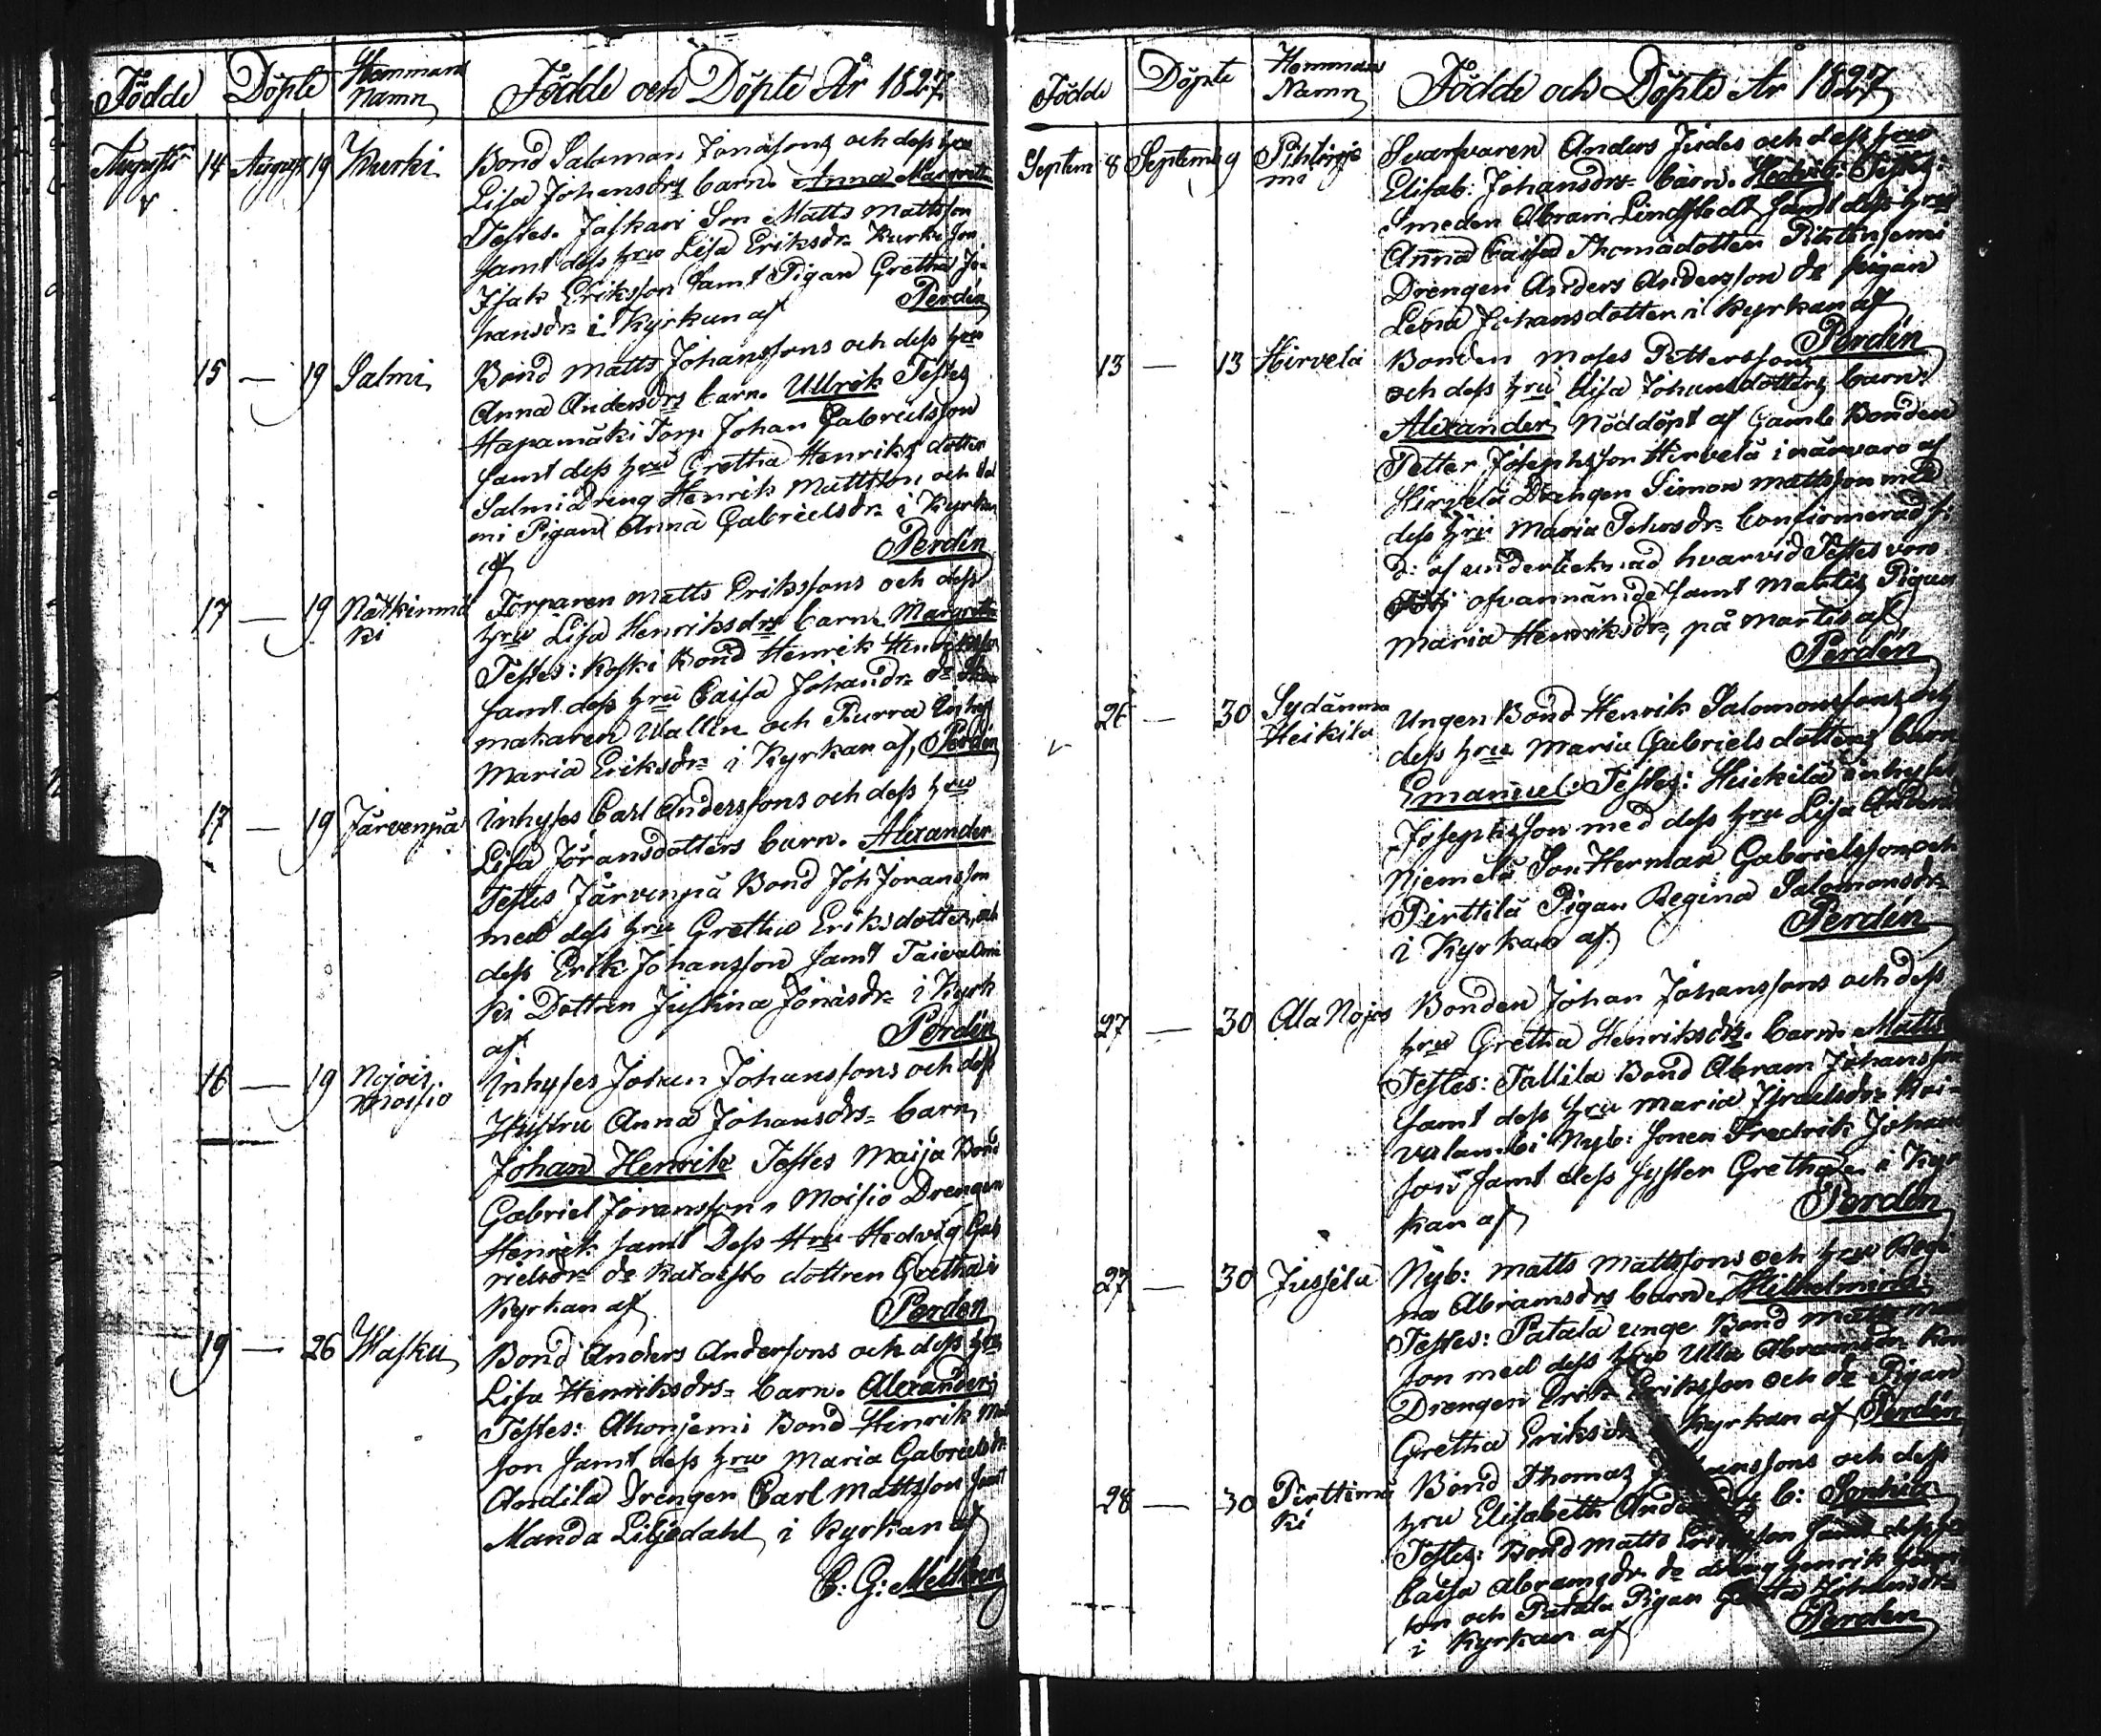 Födde Döpte Hemmans Namn Födde och Döpte År 1827
Augusti 14 August 19 Kurki Bond Salomon Jonassons och dess hru
Lisa Johansdrs barn. Anna Margreta
Testes. Jaskari Son Matts Mattsson
samt dess hru Lisa Eriksdr Kurki Son
Isak Eriksson samt Pigan Gretha Jo-
hansdr i Kyrkan af Perdén
15 — 19 Salmi Bond Matts Johanssons och dess hru
Anna Andersdrs barn. Ullrik Testes
Hapamäki Torp Johan Gabrielsson
samt dess hru Gretha Henriks dotter
Salmi Dreng Henrik Mattsson och
mi Pigan Anna Gabrielsdr i Kyrkan
af Perdén
17 — 19 Nätkinmä
ki
Torparen Matts Erikssons och dess
hru Lisa Henriksdrs barn. Margretha
Testes: Koski Bond Henrik Henriksson
samt dess hru Caisa Johansdr de
makaren Wallin och Kurra Inhys
Maria Eriksdr i Kyrkan af Perdén
17 — 19 Järvenpä Inhyses Carl Anderssons och dess hru
Lisa Jöransdotters barn. Alexander
Testes Järvenpä Bond Joh Joransson
med dess hru Gretha Eriksdotter, och
dess Erik Johansson samt Taivalmä
ki Dottren Justina Jonasdr i Kyrk
af Perdén
16 — 19 Nojois
Moisio
Inhyses Johan Johanssons och dess
Hustru Anna Johansdrs barn
Johan Henrik Testes Maija Bond
Gabriel Joransson, Moisio Drengen
Henrik samt Dess Hru Hedvig Gab
rielsdr de Kataisto dottren Gretha i
Kyrkan af Perdén
19 — 26 Wasku Bond Anders Andersons och dess hru
Lisa Henriksdrs barn. Alexander
Testes: Ahonjemi Bond Henrik Matt
son samt dess hru Maria Gabrielsdr
Andila Drengen Carl Mattsson samt
Manda Liljedahl i Kyrkan af
C: G: Mellberg
Födde Döpte Hemmans Namn Födde och Döpte År 1827
Septem 8 Septemb 9 Pihlinje
mi
Svarfvaren Anders Judes och dess hru
Elisab: Johansdrs barn. Hedvig: Testes:
Smeden Abram Lindstedt samt dess hru
Anna Caisa Thomadotter
Drengen Anders Andersson de pigan
Lena Johansdotter i Kyrkan af
Perdén
13 — 13 Hirvelä Bonden Moses Pettersson
och dess hru Lisa Johansdotters barn
Alexander, Nöddöpt af Gamle Bonden
Petter Josephsson Hirvelä i närvaro af
Hirvelä Drengen Simon Mattsson med
dess hru Maria Petersdr Confirmerad
d: af undertecknad hvarvid Testes voro
ofvannämde samt Martis Pigan
Maria Henriksdr, på Martis af
Perdén
26 — 30 Sydänma
Heikila
Ungen Bond Henrik Salomonssons och
dess hru Maria Gabriels dotters barn
Emanuel: Testes: Heikilä Inhyses
Josephsson med dess hru Lisa Anders
Njemelä Son Herman Gabrielsson och
Pirttilä Pigan Regina Salomonsdr
i Kyrkan af Perdén
27 — 30 Ala Nojos Bonden Johan Johanssons och dess
hru Gretha Henriksdrs. barn. Matts
Testes: Tallila Bond Abram Johansson
samt dess hru Maria Israelsdr Koi-
valambi Nyb: Sonen Fredrik Johans
son samt dess syster Gretha i Kyr
kan af Perdén
27 — 30 Jussila Nyb: Matts Mattssons och hru Regi
na Abramsdrs barn. Wilhelmina
Testes: Patala unge Bond Matts Matt
son med dess hru Ulla Abramsdr
Drengen Erik Eriksson och de Pigan
Gretha Eriksdr i Kyrkan af Perdén
28 — 30 Pirttimä
ki
Bond Thomas Johanssons och dess
hru Elisabeth b: Sophia
Testes: Bond Matts Eriksson samt dess hru
Caisa Abramsdr de dreng Henrik
son och Patala Pigan Gretha Johansdr
i Kyrkan af Perdén